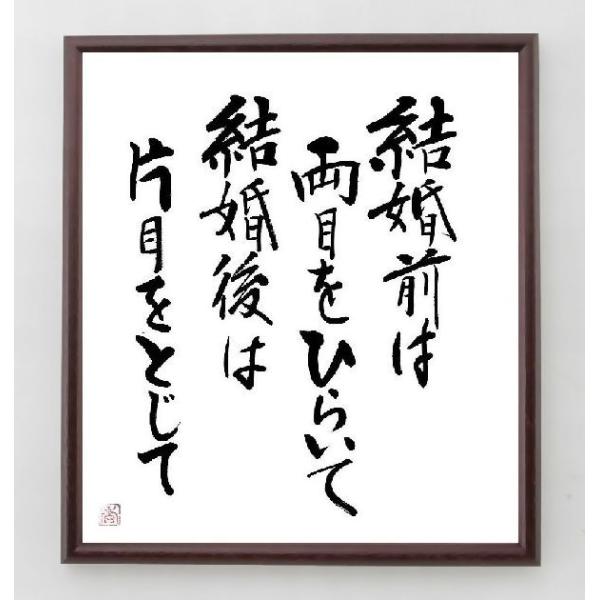 結婚前は
両目をひらいて
結婚後は
片目をとじて